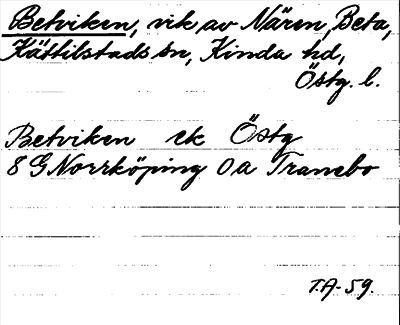 Betviken, vik av Nären, Beta,
Kättilstads sn, Kinda hd,
Östg. l.
Betviken ek Östg
8 G Norrköping 0 a Tranebo
T.A-59.